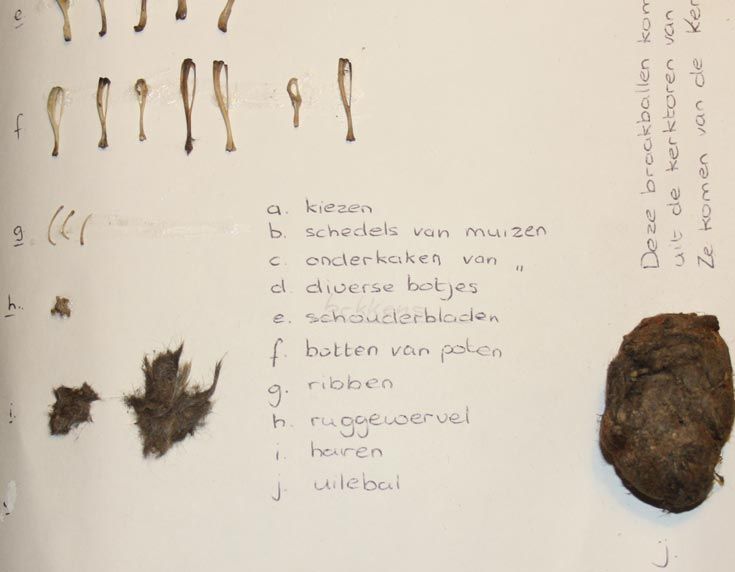 e
f
g
h.
i.
a. kiezen
b. schedels van muizen
c. onderkaken van "
d. diverse botjes
bekkens
e. schouderbladen
f. botten van poten
g. ribben
h. ruggewervel
i. haren
j. uilebal
Deze braakballen kom
uit de kerktoren van
Ze komen van de Ker
j.